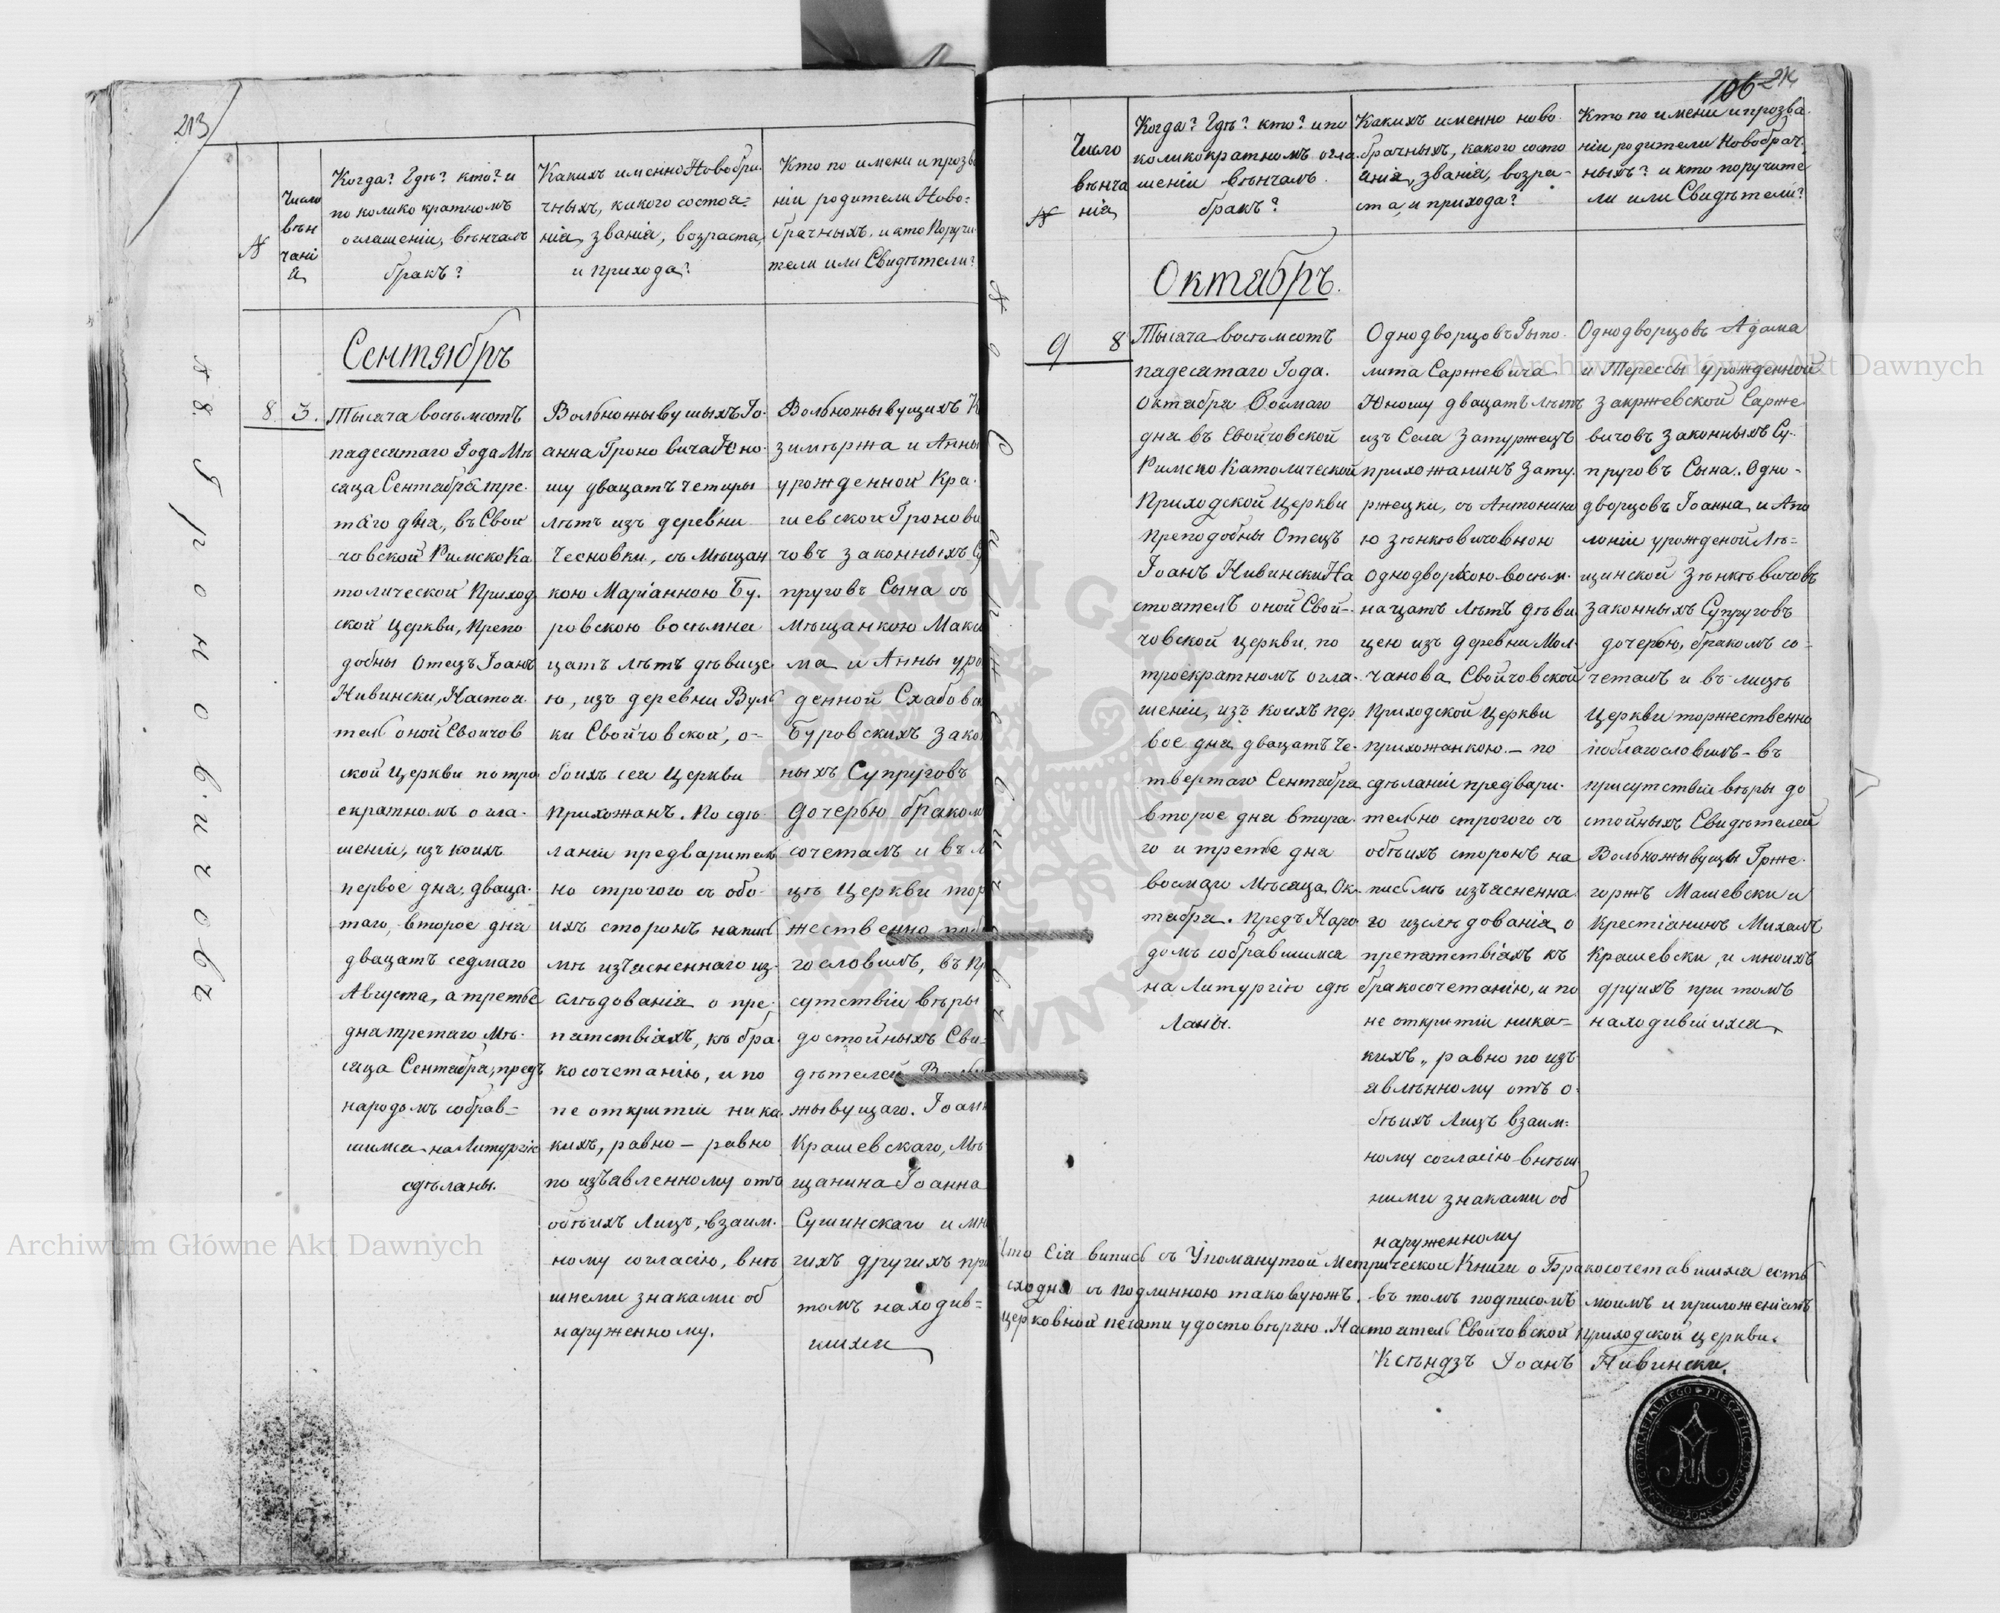 213
№
Число
вѣн
чані
й
Когда? Гдѣ? кто? и
по колико кратномъ
оглашеніи, вѣнчалъ
бракъ?
Какихъ именно Новобра
чныхъ, какого состоя=
нія, званія, возраста,
и прихода?
Кто по имени и прозв
ніи родители Ново=
брачныхъ, и кто Поручи
тели или Свидѣтели?
Сентябръ
8 3.
Тысяча восъмсотъ
падесятаго Года Мѣ
сяца Сентября тре-
таго дня, въ Свой
човской Римско Ка
толической Приход
ской Церкви, Препо
добны Отецъ Іоанъ
Нивински, Настоя-
телъ оной Свойчов
ской Церкви по тро
екратномъ огла-
шеніи, изъ коихъ
первое дня, дваца-
таго, второе дня
двацатъ седмаго
Августа, а третъе
дня третаго Мѣ-
сяца Сентября, предъ
народомъ собрав=
шимся на Литургію
сдѣланы.
Волъножывущыхъ Іо-
анна Гроновича Юно-
шу двацатъ четыры
лѣтъ изъ деревни
Чесновки, съ Мѣщан
кою Маріанною Бу-
ровскою восъмна
цатъ лѣтъ дѣвице
ю, изъ деревни Вулъ
ки Свойчовской, о-
боихъ сея Церкви
Прихожанъ. По сдѣ-
ланіи предварителъ
но строгого съ обо-
ихъ сторонъ на писъ
мѣ изъясненнаго из-
слѣдованія о пре-
пятствіяхъ, къ бра-
косочетанію, и по
не открытіи ника
кихъ, равно - равно
по изъявленному отъ
обѣихъ Лицъ, взаим-
ному согласію, внѣ
шнеми знаками об
наруженному.
Волъножывущихъ К
зимѣржа и Анны
урожденной Кра-
шевской Гронови
човъ законныхъ Су
пруговъ Сына съ
Мѣщанкою Макси
ма и Анны уро
денной Схабовск
Буровскихъ зако
ныхъ Супруговъ
Дочерью браком
сочеталъ и въ л
цѣ Церкви тор
жественно побл
гословилъ, въ Пр
сутствіи вѣры
достойныхъ Сви-
дѣтелей Волъно
жывущаго Іоанн
Крашевскаго, Мѣ
щанина Іоанна
Сушинскаго и мн
гихъ другихъ при
томъ находив=
шихся
№ 8 Гроновичовъ
106 214
№
Число
вѣнча
нія
Когда? Гдѣ? кто? и по
коликократномъ огла
шеніи вѣнчалъ
бракъ?
Какихъ именно ново-
брачныхъ, какого состо
янія, званія, возра-
ста, и прихода?
Кто по имени и прозва-
ніи родители Новобрач-
ныхъ? и кто поручите
ли или Свидѣтели?
Октябръ.
9 8
Тысяча восъмсотъ
падесятаго Года.
Октября Восмаго
дня въ Свойчовской
Римско Католической
Приходской Церкви
Преподобны Отецъ
Іоанъ Нивински На
стоятелъ оной Свой-
човской Церкви, по
троекратномъ огла-
шеніи, изъ коихъ пер
вое дня двацатъ че-
твертаго Сентября
второе дня втора-
го и третъе дня
восмаго Мѣсяца Ок-
тября. Предъ Наро
домъ собравшимся
на Литургію сдѣ
ланы.
Однодворцовъ Іыпо-
лита Саржевича
Юношу двацатъ лѣтъ
изъ Села Затуржецъ
прихожанинъ Зату-
ржецки, съ Антонино
ю Зѣнкѣвичовною
Однодворкою восъм-
нацатъ лѣтъ дѣви
цею изъ деревни Мол-
чанова Свойчовской
Приходской Церкви
прихожанкою. - по
сдѣланіи предвари-
телъно строгого съ
обѣихъ сторонъ на
писъмѣ изъясненна
го изслѣдованія о
препятствіяхъ къ
бракосочетанію, и по
не открытіи ника=
кихъ, равно по изъ
явлѣнному отъ о-
бѣихъ Лицъ взаим-
ному согласію внѣш
ними знаками об
наруженному
Однодворцовъ Адама
и Терессы урожденной
Закржевской Сарже
вичовъ законныхъ Су-
пруговъ Сына. Одно-
дворцовъ Іоанна и Апо
лоніи урожденой Лѣ=
щинской Зѣнкѣвичовъ
законныхъ Супруговъ
дочерью, бракомъ со-
четалъ и въ лицѣ
Церкви торжественно
поблагословилъ - въ
присутствіи вѣры до
стойныхъ Свидѣтелей
Волъножывущы Грже-
горжъ Машевски и
Крестіанинъ Михалъ
Крашевски, и многихъ
другихъ при томъ
находившихся
Что Сія выписъ съ Упомянутой Метрической Книги о Бракосочетавшихся естъ
сходна съ подлинною таковуюжъ. въ томъ подписомъ моимъ и приложеніемъ
церковной печати удостовѣряю. Настоятелъ Свойчовской приходской церкви.
Ксѣндзъ Іоанъ Нивински.
Archiwum Główne Akt Dawnych
Archiwum Główne Akt Dawnych